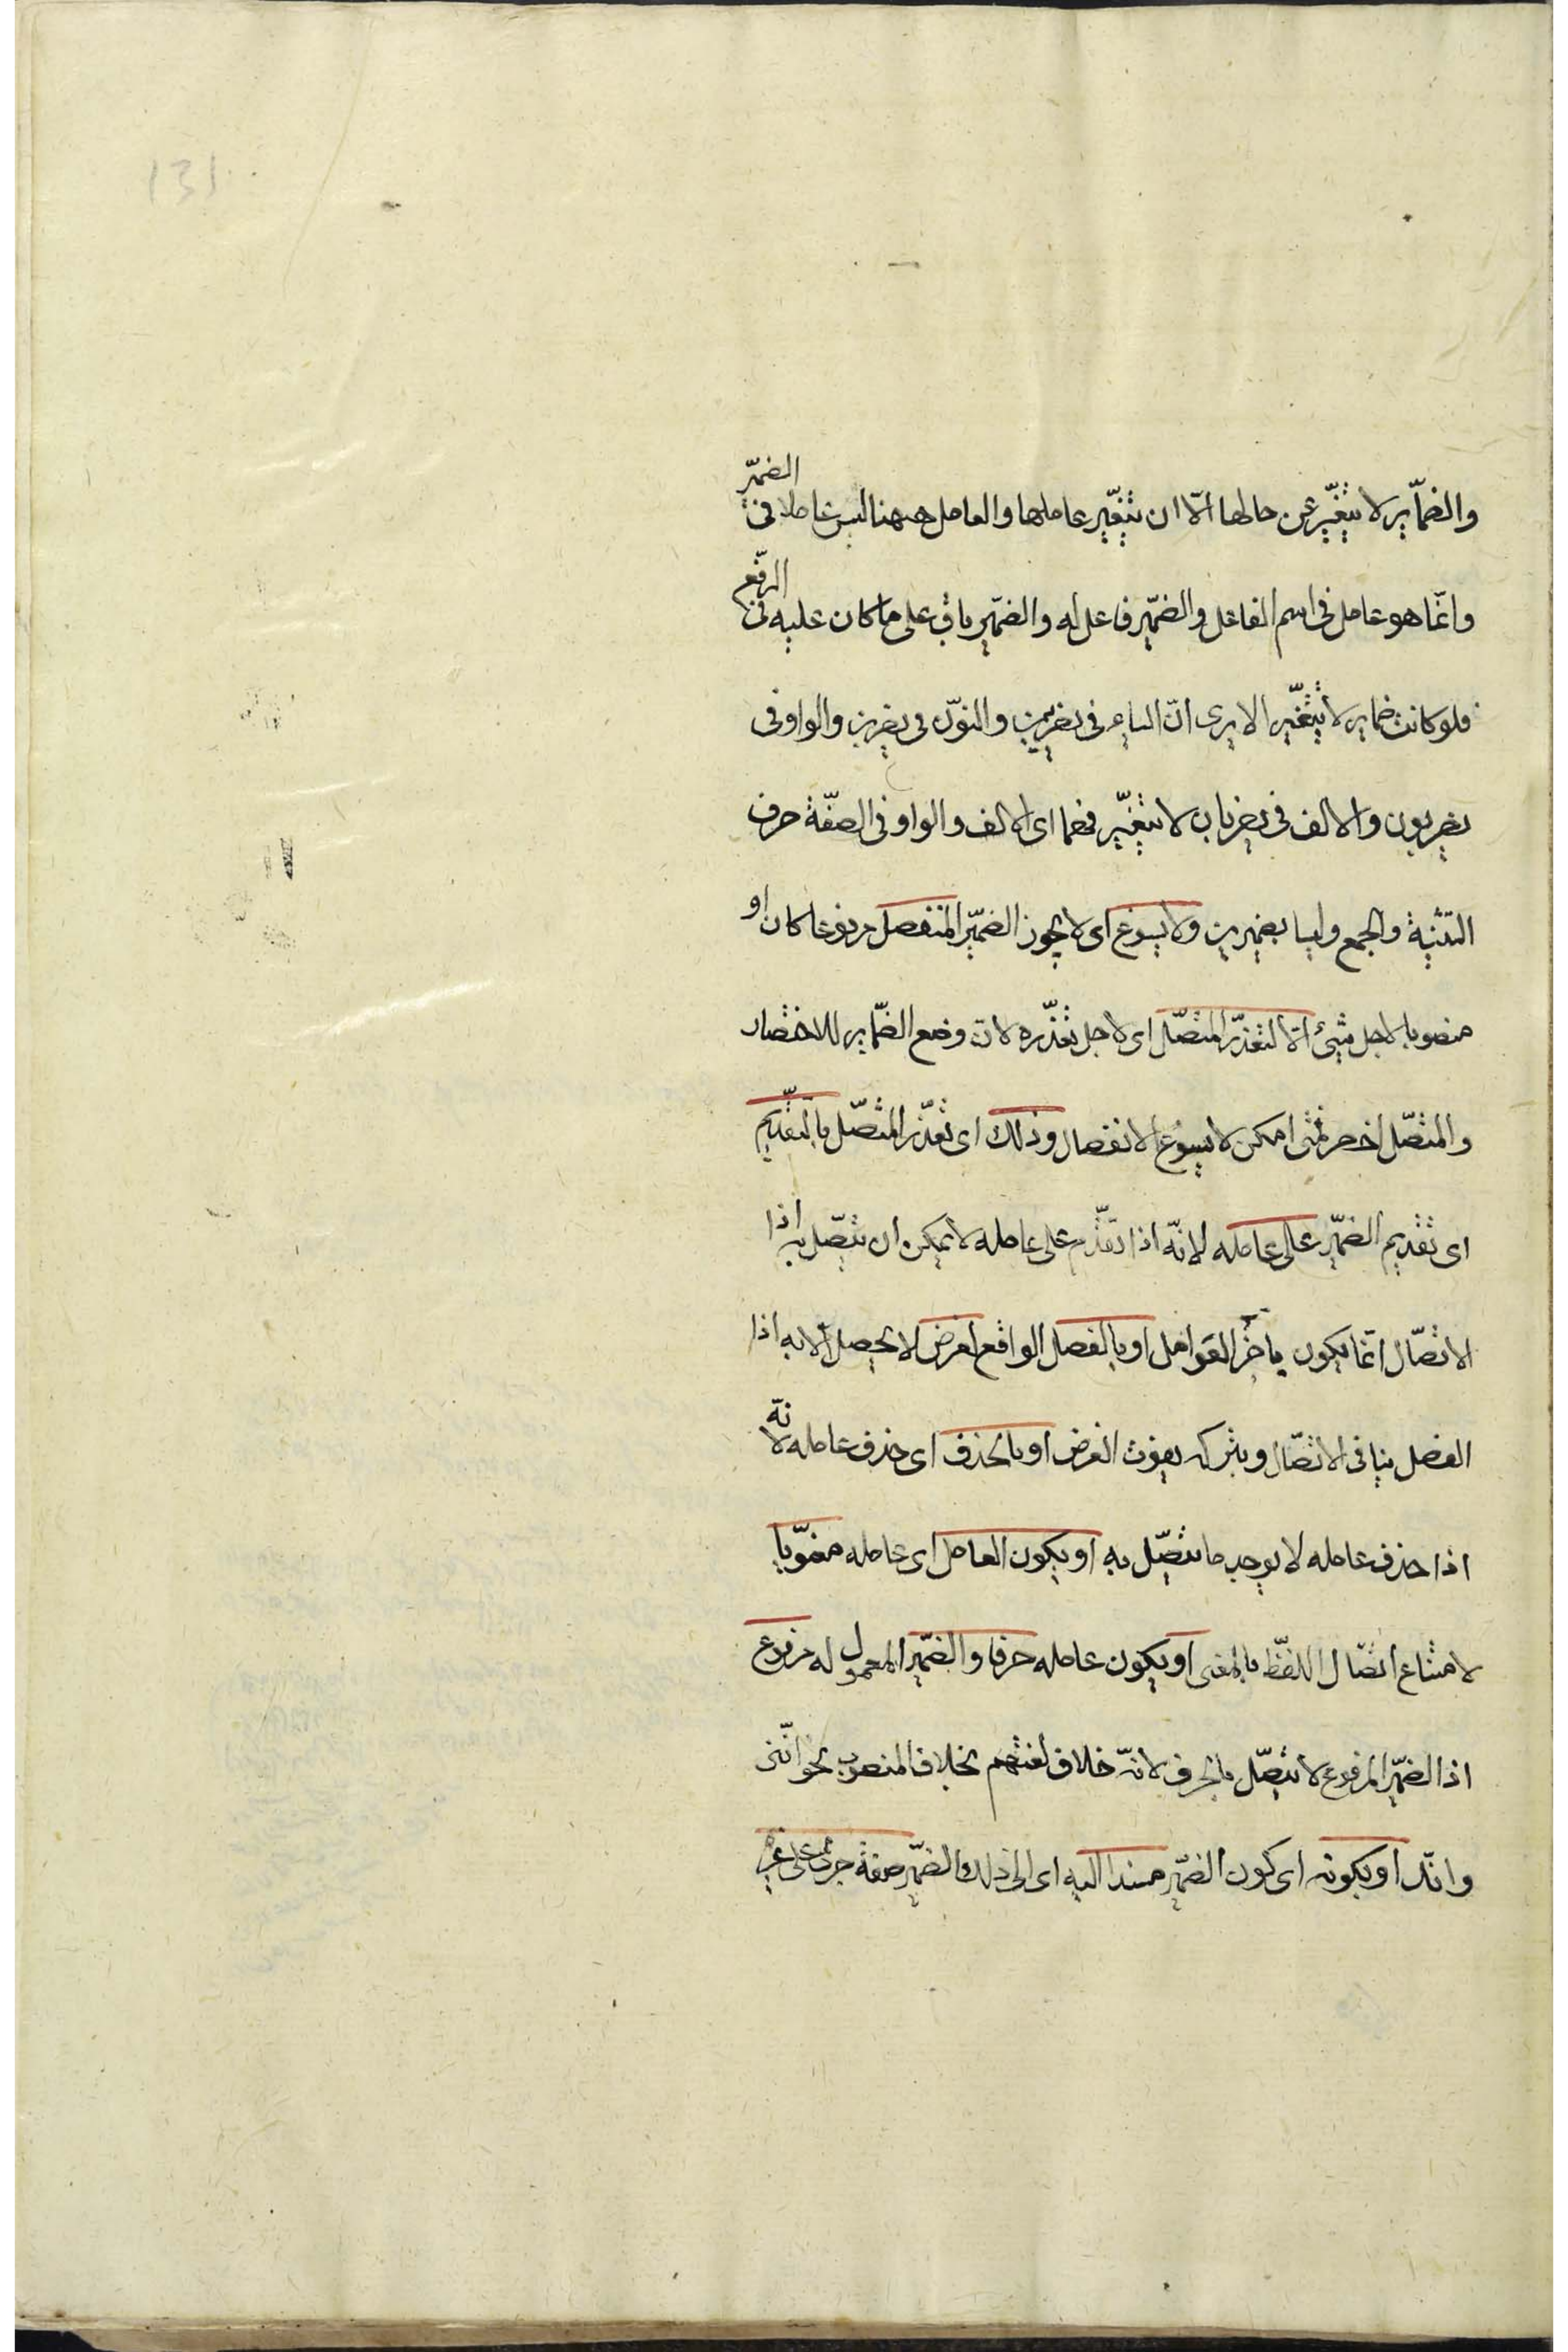 131
والضمّاير لا يتغيّر عن حالها الّا ان يتغيّر عاملها والعامل ههنا ليس عاملا في الضمّير
وانّما هو عامل في اسم الفاعل والضمّير فاعل له والضمّير باق على ما كان عليه في الرفع
فلو كانت ضماير لا يتغيّر الا يرى انّ الياء في تضربين والنّون في يضربن والواو في
يضربون والالف في يضربان لا يتغيّر فهما اى الالف والواو في الصفّة حرف
التثنية والجمع وليسا بضميرين ولا يسوغ اى لا يجوز الضمّير المنفصل مرفوعا كان او
منصوبا لاجل شيئ الّا لتعذّر المتصّل اى لاجل تعذّره لانّ وضع الضمّاير للاختصار
والمتصّل اخصر فمتى امكن لا يسوغ الانفصال وذلك اى تعذّر المتصّل بالتقديم
اى تقديم الضمّير على عامله لانّه اذا تقدّم على عامله لا يمكن ان يتصّل به اذا
الاتصّال انّما يكون باخر العوامل او بالفصل الواقع لغرض لا يحصل الّا به اذا
الفصل ينافي الاتصّال وبتركه يفوت الغرض او بالحذف اى حذف عامله لانّه
اذا حذف عامله لا يوجد ما يتصّل به او يكون العامل اى عامله معنويّا
لامتناع اتصّال اللفظّ بالمعنى او يكون عامله حرفا والضمّير المعمول له مرفوع
اذا الضمّير المرفوع لا يتصّل بالحرف لانّه خلاف لغتهم بخلاف المنصوب نحو انّني
وانّك او بكونه اى كون الضمّير مسندا اليه اى الى ذلك الضمّير صفة جرت على غير